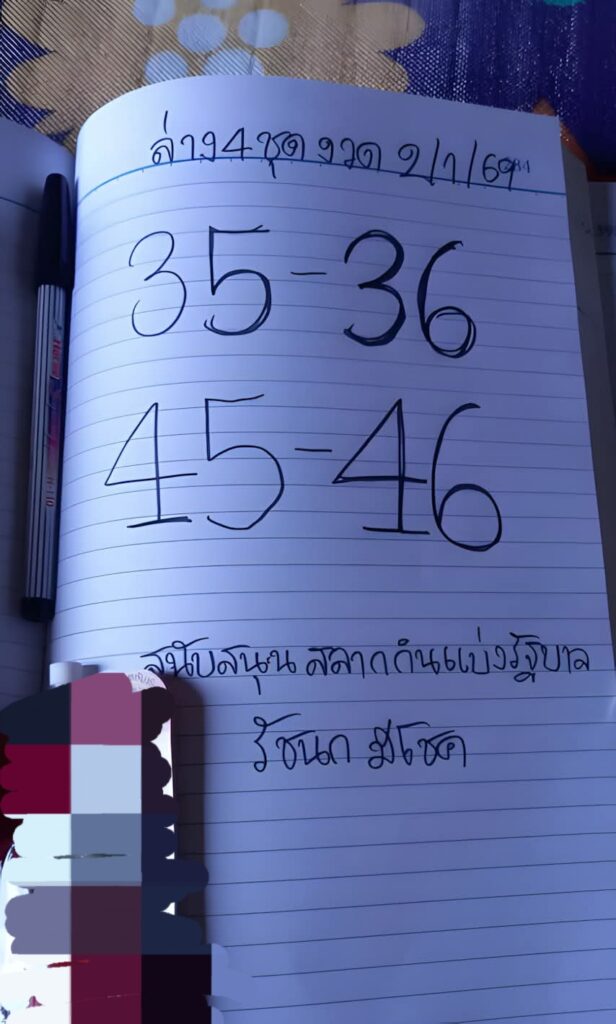 ล่าง 4 ชุด งวด 2/1/69
35-36
45-46
สนับสนุน สลากกินแบ่งรัฐบาล
รัชนก มีโชค